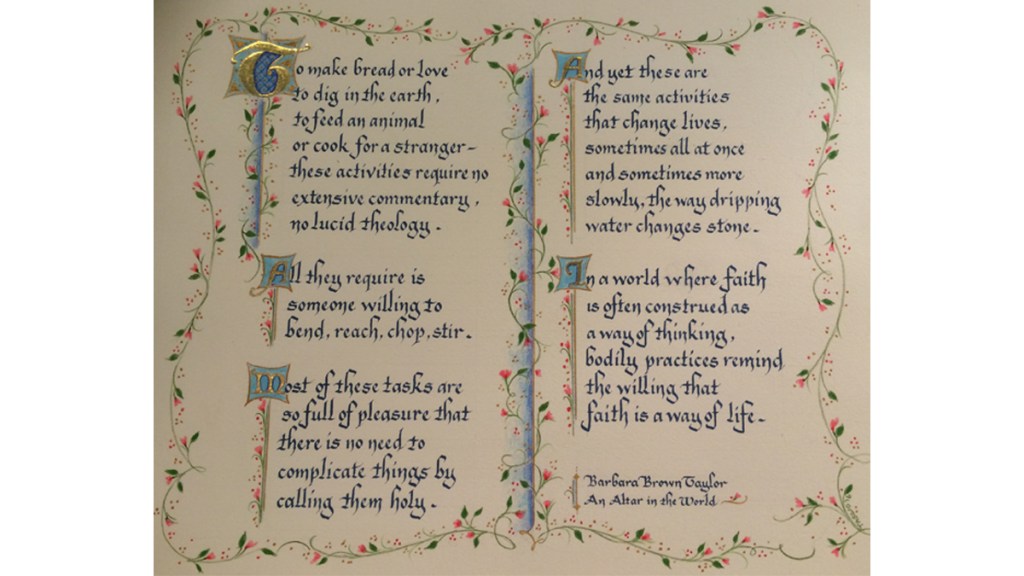 To make bread or love
to dig in the earth,
to feed an animal
or cook for a stranger—
these activities require no
extensive commentary,
no lucid theology.
All they require is
someone willing to
bend, reach, chop, stir.
Most of these tasks are
so full of pleasure that
there is no need to
complicate things by
calling them holy.
And yet these are
the same activities
that change lives,
sometimes all at once
and sometimes more
slowly, the way dripping
water changes stone.
In a world where faith
is often construed as
a way of thinking,
bodily practices remind
the willing that
faith is a way of life.
Barbara Brown Taylor
An Altar in the World